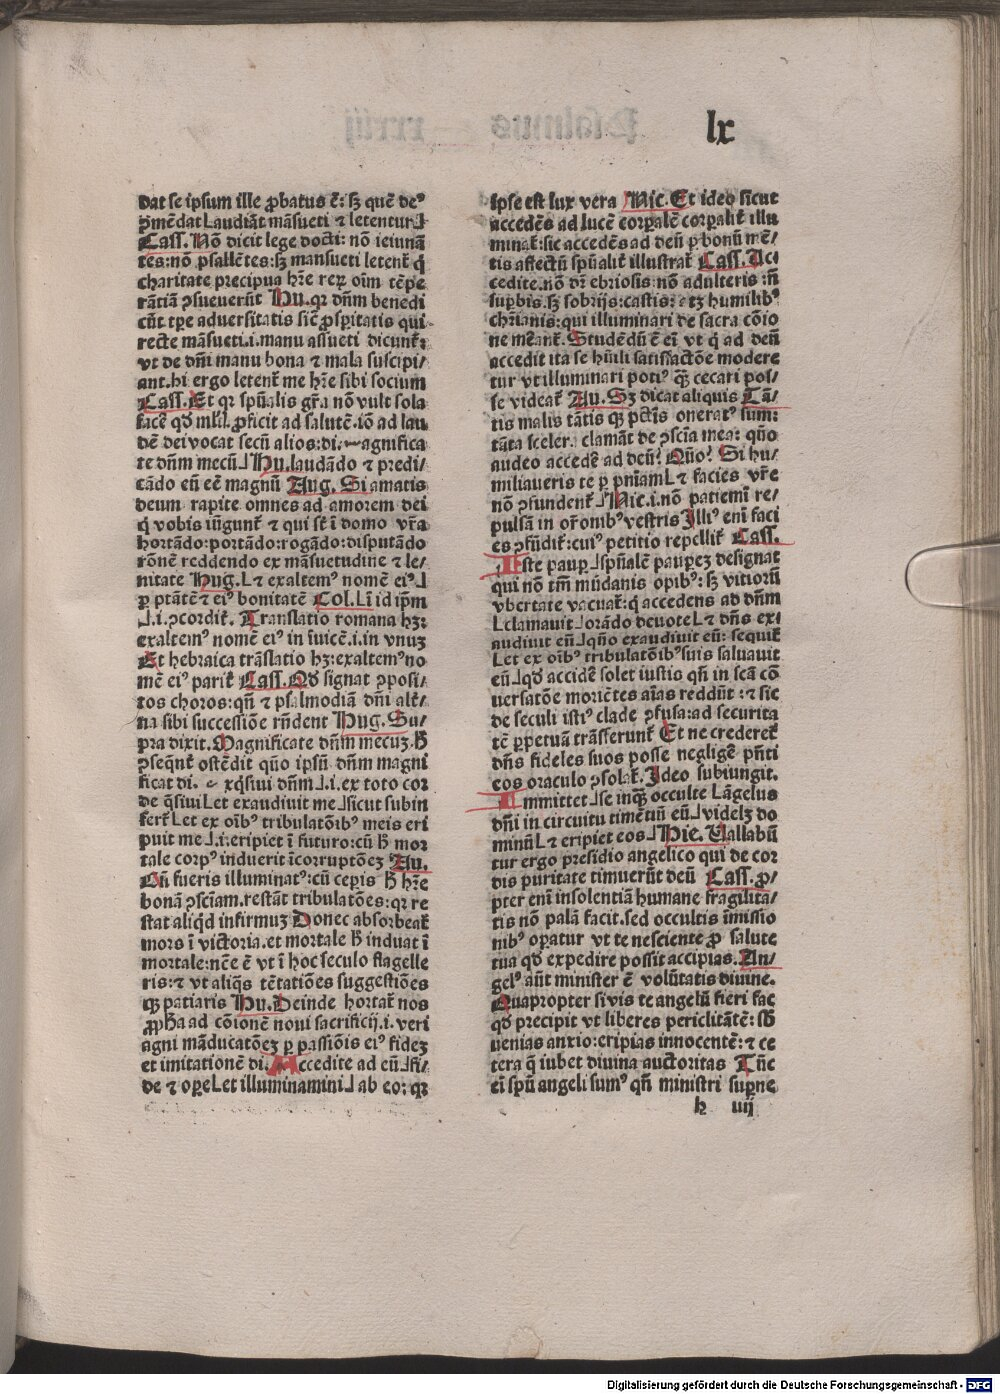 lx
dat se ipsum ille ꝓbatus ē: sꝫ quē deꝰ
ꝯmēdat Laudiāt māsueti ⁊ letentur⅃
Cass. Nō dicit lege docti: nō ieiunā
tes: nō psallētes: sꝫ mansueti letentꝛ q̇
charitate precipua hr̄e reꝝ oīm tēpe
rātiā ꝯsueuerūt Hu. qꝛ dn̄m benedi
cūt tꝑe aduersitatis sic̄ ꝓsꝑitatis qui
recte māsueti .i. manu assueti dicuntꝛ:
vt de dn̄i manu bona ⁊ mala suscipi/
ant. hi ergo letentꝛ me hr̄e sibi socium
Cass. Et qꝛ spūalis gr̄a nō vult sola
facē qd̄ ml̄tꝭ ꝓficit ad salutē. iō ad lau
dē dei vocat secū alios: di. magnifica
te dn̄m mecū⅃ Hu. laudādo ⁊ predi/
cādo eū eē magnū Aug. Si amatis
deum rapite omnes ad amorem dei
q̇ vobis iūguntꝛ ⁊ qui st̄ ī domo vr̄a
hortādo: portādo: rogādo: disputādo
rōnē reddendo ex māsuetudine ⁊ le/
nitate Hug. L⁊ exaltemꝰ nomē eiꝰ⅃
ꝑ ptātē ⁊ eiꝰ bonitatē Col. Lī id ip̄m
⅃.i. ꝯcorditꝛ. Translatio romana hꝫ:
exaltemꝰ nomē eiꝰ in īuicē .i. in vnuꝫ
Et hebraica trāslatio hꝫ: exaltemꝰ no
mē eiꝰ paritꝛ Cass. Qd̄ signat ꝯposi/
tos choros: qn̄ ⁊ psalmodiā dn̄i altē/
na sibi successiōe rn̄dent Hug. Su/
pra dixit. Magnificate dn̄m mecuꝫ. ħ
ꝯseqn̄t ostēdit quō ipsū dn̄m magni
ficat di. Exq̄siui dn̄m⅃.i. ex toto cor
de q̄siui Let exaudiuit me⅃ sicut subin
fertꝛ Let ex oībꝰ tribulatōībꝰ meis eri
puit me⅃.i. eripiet ī futuro: cū ħ mor
tale corpꝰ induerit īcorruptōeꝫ Au.
Qn̄ fueris illuminatꝰ: cū ceꝑis ħ hr̄e
bonā ꝯsciam. restāt tribulatōes: qꝛ re
stat aliqd̄ infirmuꝫ Donec absorbeatꝛ
mors ī victoria. et mortale ħ induat ī
mortale: nēe ē vt ī hoc seculo flagelle
ris: ⁊ vt aliq̄s tētatiōes suggestiōes
qꝫ patiaris Hu. Deinde hortatꝛ nos
ꝓpħa ad cōionē noui sacrificij .i. veri
agni māducatōeꝫ ꝑ passiōis eiꝰ fideꝫ
et imitationē di. Accedite ad eū⅃ fi/
de ⁊ oꝑe Let illuminamini⅃ ab eo: qꝛ
ipse est lux vera Nic. Et ideo sicut
accedēs ad lucē corꝑalē corꝑalitꝛ illu
minatꝛ: sic accedēs ad deū ꝑ bonū mē/
tis affectū spūalitꝛ illustratꝛ Cass. Ac/
cedite. nō dꝛ ebriosis: nō adulteris: n̄
suꝑbis. sꝫ sobrijs: castis: etꝫ humilibꝰ
chr̄ianis: qui illuminari de sacra cōio
ne meātꝛ. Studēdū ē eī vt q̇ ad deū
accedit ita se hūili satisfactōe modere
tur vt illuminari potiꝰ qꝫ cecari pos/
se videatꝛ Au. Sꝫ dicat aliquis Tā/
tis malis tātis qꝫ pctīs oneratꝰ sum:
tāta sceler. clamāt de ꝯscīa mea: quō
audeo accedē ad deū? Quō? Si hu/
miliaueris te ꝑ pn̄iam L⁊ facies vr̄e
nō ꝯfundentꝛ⅃ Nic. i. nō patiemī re/
pulsā in or̄onibꝰ vestris Illiꝰ enī faci
es ꝯfūditꝛ: cuiꝰ petitio repellitꝛ Cass.
Iste pauꝑ⅃ spūalē pauꝑeꝫ designat
qui nō tm̄ mūdanis opibꝰ: sꝫ vitiorū
vbertate vacuatꝛ: q̇ accedens ad dn̄m
Lclamauit⅃ orādo deuote L⁊ dn̄s ex/
audiuit eū⅃ quō exaudiuit eū: sequitꝛ
Let ex oībꝰ tribulatōibꝰ suis saluauit
eū⅃ qd̄ accidē solet iustis qn̄ in scā cō
uersatōe moriētes aīas reddūt: ⁊ sic
de seculi istiꝰ clade ꝯfusa: ad securita
tē ꝑpetuā trāsferuntꝛ Et ne crederetꝛ
dn̄s fideles suos posse negligē pn̄ti
eos oraculo ꝯsolatꝛ. Ideo subiungit.
Immittet⅃ se inqꝫ occulte Lāngelus
dn̄i in circuitu timētiū eū⅃ videlꝫ do
minū L⁊ eripiet eos⅃ Hie. Uallabū
tur ergo presidio angelico qui de cor
dis puritate timuerūt deū Cass. ꝓ/
pter enī insolentiā humane fragilita/
tis nō palā facit. sed occultis īmissio
nibꝰ oꝑatur vt te nesciente ꝓ salute
tua qd̄ expedire possit accipias. An/
gelꝰ aūt minister ē volūtatis diuine.
Quapropter si vis te angelū fieri fac
qd̄ precipit vt liberes periclitātē: sb̄
uenias anxio: eripias innocentē: ⁊ ce
tera q̄ iubet diuina auctoritas Tūc
eī spū angeli sumꝰ qn̄ ministri suꝑne
h iiij
Digitalisierung gefördert durch die Deutsche Forschungsgemeinschaft - DFG